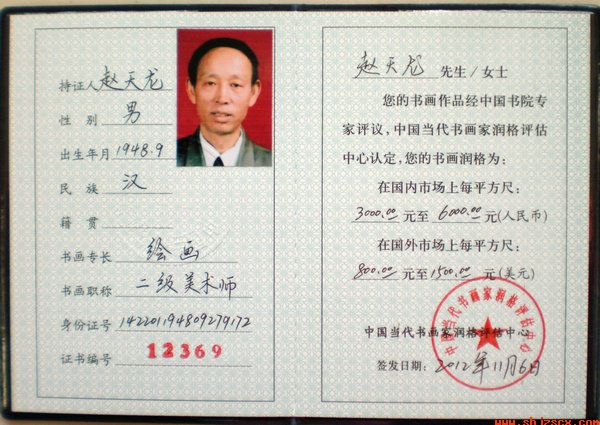 持证人 赵天龙
性 别 男
出生年月 1948.9
民 族 汉
籍 贯
书画专长 绘画
书画职称 二级美术师
身份证号 142201194809279172
证书编号 12369
赵天龙 先生/女士
您的书画作品经中国书院专
家评议,中国当代书画家润格评估
中心认定,您的书画润格为:
在国内市场上每平方尺:
3000.00 元至 6000.00 元(人民币)
在国外市场上每平方尺:
800.00 元至 1500.00 元(美元)
中国当代书画家润格评估中心
中国当代书画家润格评估中心
签发日期: 2012年11月6日
www.shjzscx.com